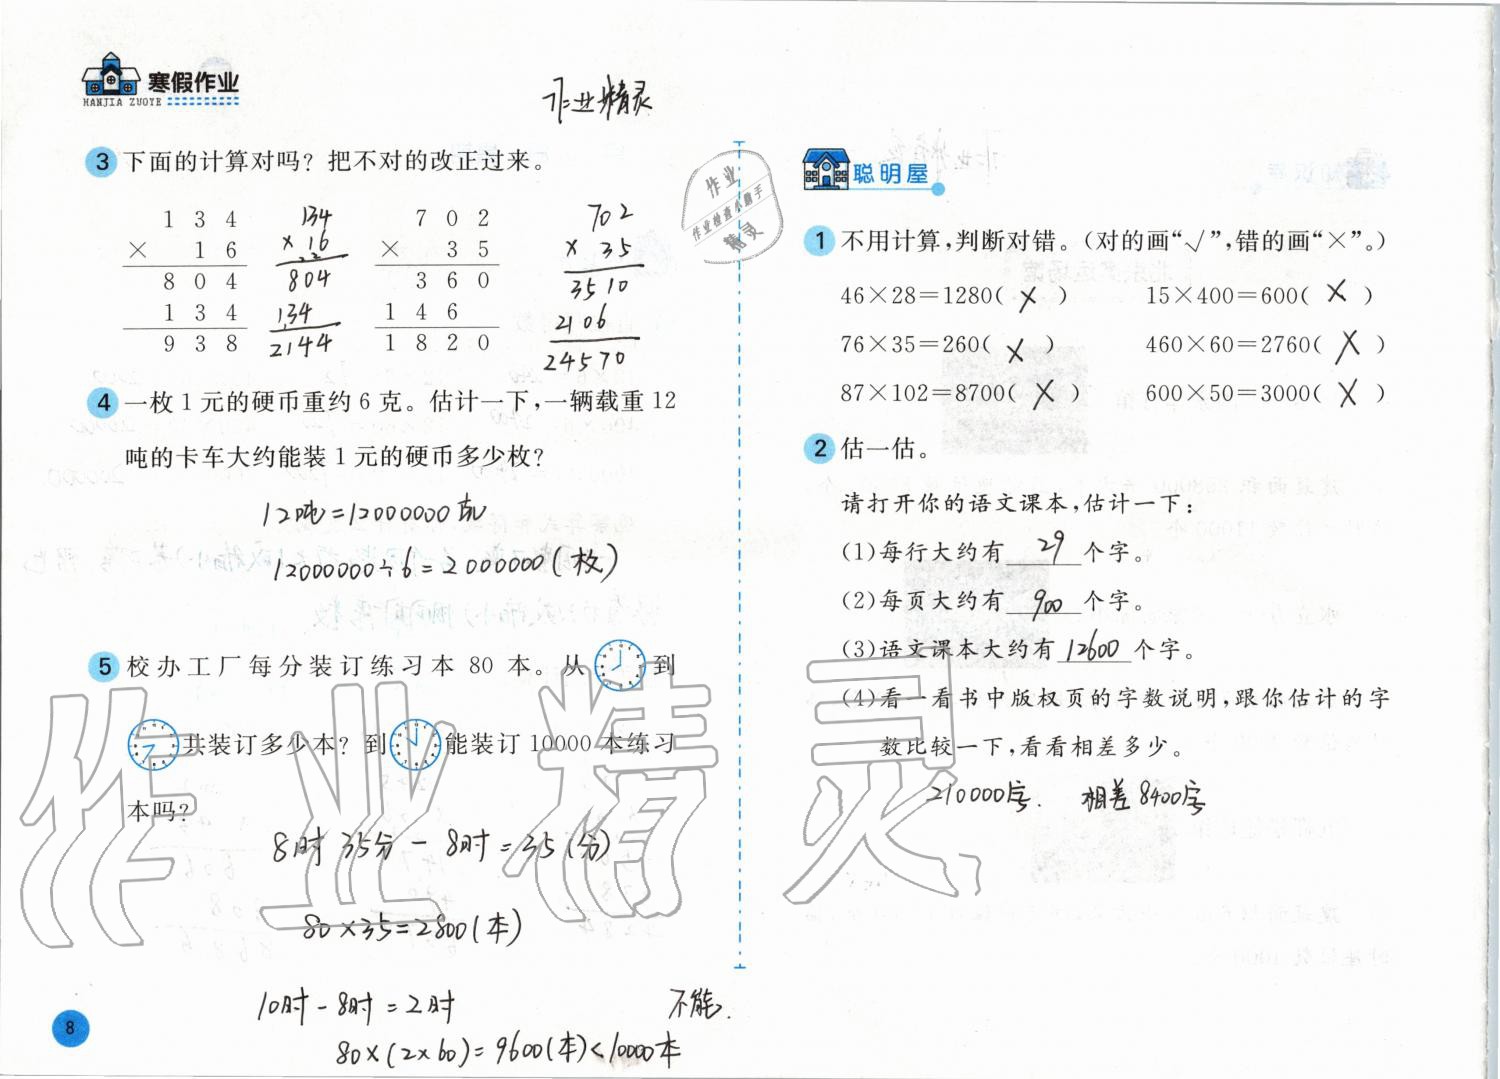 寒假作业
HANJIA ZUOYE
作业精灵
3 下面的计算对吗？把不对的改正过来。
1 3 4
× 1 6
8 0 4
1 3 4
9 3 8
134
× 16
804
134
2144
7 0 2
× 3 5
3 6 0
1 4 6
1 8 2 0
702
× 35
3510
2106
24570
4 一枚1元的硬币重约6克。估计一下，一辆载重12
吨的卡车大约能装1元的硬币多少枚？
12吨=12000000克
12000000÷6=2000000(枚)
5 校办工厂每分装订练习本 80 本。从 到
共装订多少本？到 能装订 10000 本练习
本吗？
8时35分-8时=35(分)
80×35=2800(本)
10时-8时=2时
不能.
80×(2×60)=9600(本)<10000本
8
作业
作业检查小助手
精灵
聪明屋
1 不用计算，判断对错。（对的画“√”，错的画“×”。）
46×28=1280( × ) 15×400=600( × )
76×35=260( × ) 460×60=2760( × )
87×102=8700( × ) 600×50=3000( × )
2 估一估。
请打开你的语文课本，估计一下：
(1)每行大约有 29 个字。
(2)每页大约有 900 个字。
(3)语文课本大约有 12600 个字。
(4)看一看书中版权页的字数说明，跟你估计的字
数比较一下，看看相差多少。
210000字. 相差8400字
作业精灵